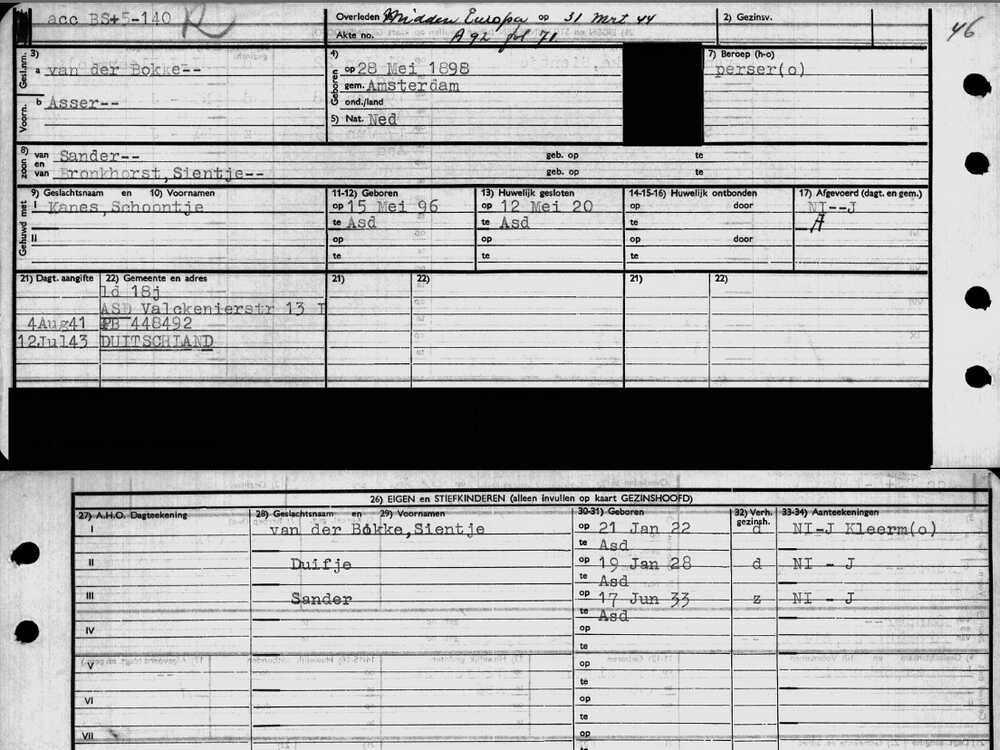 acc BS+5-140 R
Overleden te Midden Europa op 31 Mrt 44
2) Gezinsv.
46
Akte no. A 92 fol 71
Gesl.nm. 3) a van der Bokke--
Voorn. b Asser--
4) Geboren op 28 Mei 1898
gem. Amsterdam
ond./land
5) Nat. Ned
7) Beroep (h-o)
perser(o)
8) zoon van Sander-- geb. op te
en van Bronkhorst,Sientje-- geb. op te
Gehuwd met
9) Geslachtsnaam en 10) Voornamen
11-12) Geboren
13) Huwelijk gesloten
14-15-16) Huwelijk ontbonden
17) Afgevoerd (dagt. en gem.)
I Kanes,Schoontje
op 15 Mei 96
op 12 Mei 20
op door
NI--J
te Asd
te Asd
te
A
II
op
op
op door
te
te
te
21) Dagt. aangifte
22) Gemeente en adres
21)
22)
21)
22)
ld 18j
ASD Valckenierstr 13 I
4Aug41 PB 448492
12Jul43 DUITSCHLAND
26) EIGEN en STIEFKINDEREN (alleen invullen op kaart GEZINSHOOFD)
27) A.H.O. Dagteekening
28) Geslachtsnaam en 29) Voornamen
30-31) Geboren
32) Verh. gezinsh.
33-34) Aanteekeningen
I van der Bokke,Sientje op 21 Jan 22 d NI-J Kleerm(o)
te Asd
II Duifje op 19 Jan 28 d NI - J
te Asd
III Sander op 17 Jun 33 z NI - J
te Asd
IV op
te
V op
te
VI op
te
VII op